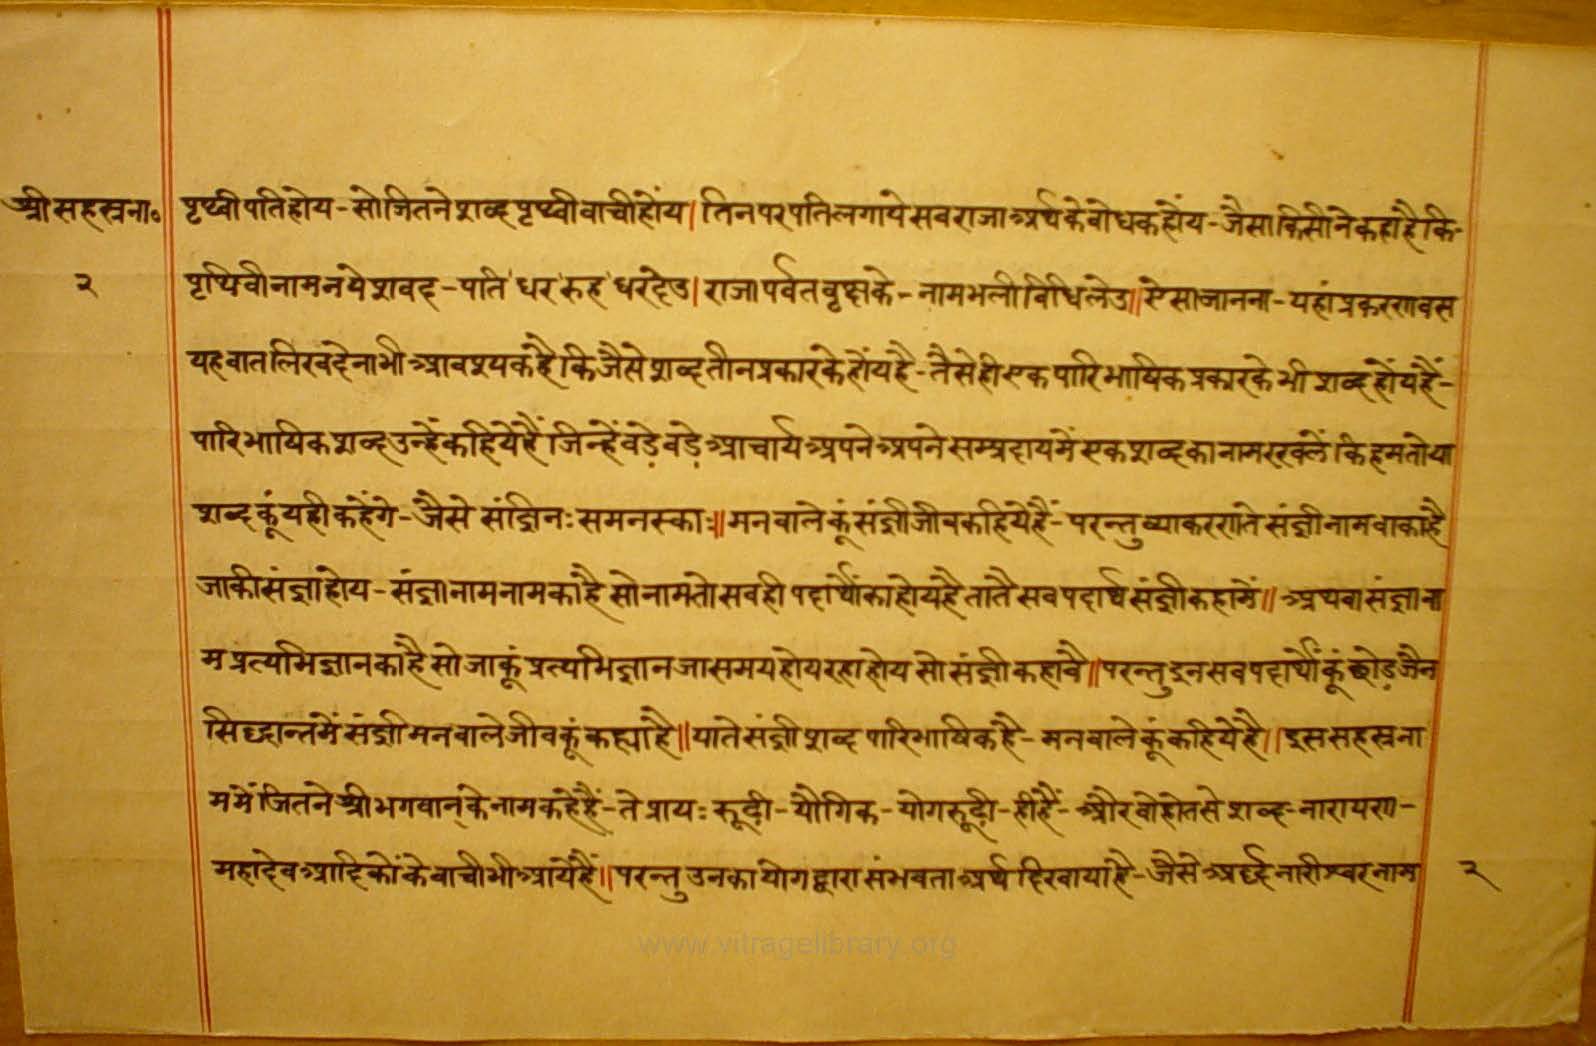 श्रीसहस्त्रना॰ पृथ्वीपतिहोय-सोजितनेशब्दपृथ्वीवाचीहोंय। तिनपरपतिलगायेसवराजाअर्थकेवोधकहोंय-जैसाकिसीनेकहाहैकि-
२ पृथिवीनामनयेशवद-पति'धर'रुह'धरदेउ। राजापर्वतवृक्षके-नामभलीविधिलेउ॥ ऐसाजानना-यहांप्रकरणवस
यहवातलिखदेनाभीआवश्यकहैकिजैसेशब्दतीनप्रकारकेहोंयहै-तैसेहीएकपारिभाषिकप्रकारकेभीशब्दहोंयहैं-
पारिभाषिकशब्दउन्हेंकहियेहैंजिन्हेंवड़ेवड़ेआचार्यअपनेअपनेसम्प्रदायमेंएकशब्दकानामरखलेंकिहमतोया
शब्दकूंयहीकहेंगे-जैसे संज्ञिनःसमनस्काः॥ मनवालेकूंसंज्ञीजीवकहियेहैं-परन्तुव्याकरणतेसंज्ञीनामवाकाहै
जाकीसंज्ञाहोय-संज्ञानामनामकाहैसोनामतोसवहीपदार्थोंकाहोयहैतातैसवपदार्थसंज्ञीकहामें॥ अथवासंज्ञाना
मप्रत्यभिज्ञानकाहैसोजाकूंप्रत्यभिज्ञानजासमयहोयरहाहोयसोसंज्ञीकहावै॥ परन्तुइनसवपदार्थोंकूंछोड़जैन
सिद्धान्तमेंसंज्ञीमनवालेजीवकूंकह्याहै॥ यातेसंज्ञीशब्दपारिभाषिकहै-मनवालेकूंकहियेहै॥ इससहस्त्रना
ममेंजितनेश्रीभगवान्केनामकहेहैं-तेप्रायःरूढ़ी-यौगिक-योगरूढ़ी-हीहैं-औरवोहोतसेशब्द-नारायण-
महादेवआदिकोंकेवाचीभीआयेहैं॥ परन्तुउनकायोगद्वारासंभवताअर्थदिखायाहै-जैसेअर्द्धनारीश्वरनाम २
www.vitragelibrary.org